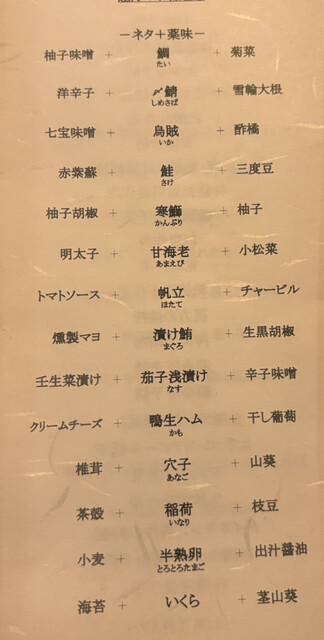 －ネタ＋薬味－
柚子味噌 + 鯛 + 菊菜
たい
洋辛子 + 〆鯖 + 雪輪大根
しめさば
七宝味噌 + 烏賊 + 酢橘
いか
赤紫蘇 + 鮭 + 三度豆
さけ
柚子胡椒 + 寒鰤 + 柚子
かんぶり
明太子 + 甘海老 + 小松菜
あまえび
トマトソース + 帆立 + チャービル
ほたて
燻製マヨ + 漬け鮪 + 生黒胡椒
まぐろ
壬生菜漬け + 茄子浅漬け + 辛子味噌
なす
クリームチーズ + 鴨生ハム + 干し葡萄
かも
椎茸 + 穴子 + 山葵
あなご
茶殻 + 稲荷 + 枝豆
いなり
小麦 + 半熟卵 + 出汁醤油
とろとろたまご
海苔 + いくら + 茎山葵